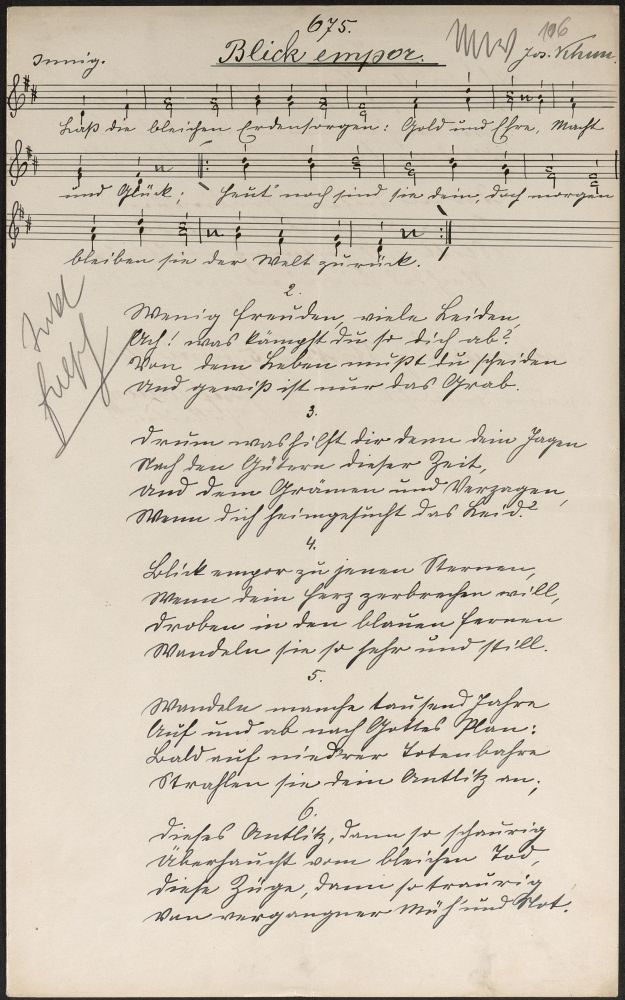 675.
196
Blick empor.
Innig.
Laß die bleichen Erdensorgen: Gold und Ehre, Macht
und Glück; heut' noch sind sie dein, doch morgen
bleiben sie der Welt zurück.
2.
Wenig Freuden, viele Leiden,
Ach! was kämpfst du so dich ab?
Von dem Leben mußt du scheiden
Und gewiß ist nur das Grab.
3.
Drum was hilft dir denn dein Jagen
Nach den Gütern dieser Zeit,
Und dem Grämen und Verzagen,
Wenn dich heimgesucht das Leid?
4.
Blick empor zu jenen Sternen,
Wenn dein Herz zerbrechen will,
Droben in den blauen Fernen
Wandeln sie so hehr und still.
5.
Wandeln manche tausend Jahre
Auf und ab nach Gottes Plan:
Bald auf niedrer Totenbahre
Strahlen sie dein Antlitz an;
6.
Dieses Antlitz, dann so schaurig
Überhaucht vom bleichen Tod,
Diese Züge, dann so traurig
Von vergangner Müh' und Not.